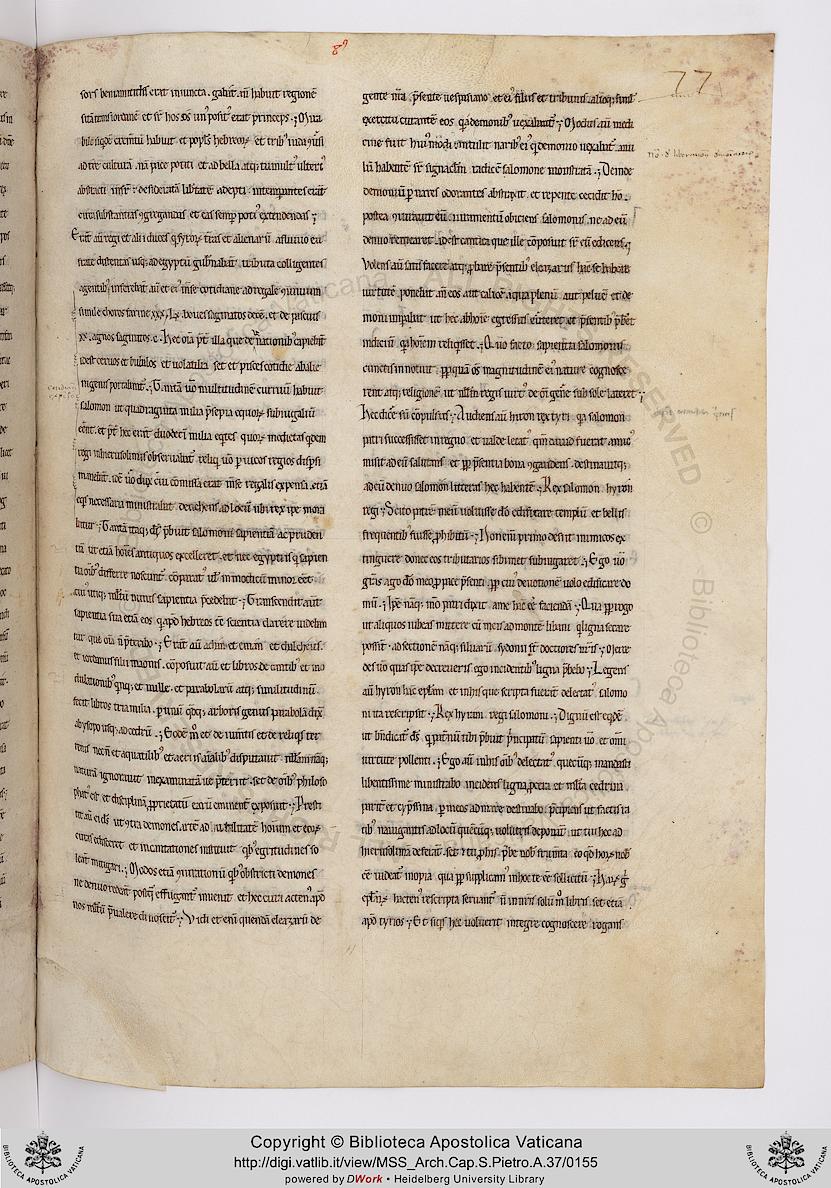 89
77
sors beniamitidis erat iniuncta. gabarī aū habuit regionē
bile siqdē cremtū habuit et popl's hebreoꝝ et trib' iuda
ad tr̄e culturā. nā pace potiti et ad bella atq; tumult' ulteri'
abstracti insr̄ desideratā libtatē adepti intempantes erāt
circa substantias ꝯgregandas et eas semp poti' extendendas
Erāt aū regi et alii duces q syroꝝ tr̄as et alienarū a fluuio eu
frate distentas usq; ad egyptū gubnabāt tributa colligentes
agentib' inferebāt aū et ei' mse cotidiane ad regale ꝯuiuium
simile choros farine xxx. lx. boues saginatos decē. et de pascuis
xx. agnos saginatos .c. hec oīa pt illa que de uenationib' capiebāt
id est ceruos et bubalos et volatilia set et pisces cotidie ab alie
nigenis portabant. Tantā uō multitudinē curruū habuit
salomon ut quadraginta milia psepia equoꝝ subiugaliū
eēnt. et pt hec erāt duodecī milia eqtes quoꝝ medietas qdem
regi in hierusolimis obseruabat reliq uō p uicos regios dispsi
manebāt. idē uō dux cui cōmissa erat mse regalis expensa. etiā
eqs necessaria ministrabat deuehens ad locū ubi rex ipe mora
batur. Tantā itaq; ds pbuit salomoni sapientiā ac pruden
tiā ut etiā hoīes antiquos excelleret. et nec egyptiis q sapien
tia oīb' differre noscunt cōparat' ul in modicū minor eēt
eni' utiq; multū nimis sapientia pcedebat. Transcendit aūt
sapientia sua etiā eos q apd hebreos eē scientia clarere uidebn
tur que oīa n pteribo. Erāt aū athan et eman et chilcheus
et tordanus filii maonis. cōposuit aū et libros de cantib' et mo
dulationib' qnq; et mille. et parabolarū atq; similitudinū
fecit libros tria milia. p unū qdq; arboris genus parabolā dix
ab ysopo usq; ad cedrū. Eodē m° et de iumtis et de reliqs ter
renis necn et aquatilib' et aeriis aīalib' disputauit. nllam naq;
naturā ignorauit inexaminatā ue pteriit. set de oīb' philoso
phat' est et disciplinā pprietatū earū eminent exposuit. Presti
tit aū ei ds ut ꝯtra demones artē ad utilitatē hoīum et eoꝝ
curas edisceret et incantationes instituit qb' egritudines so
leāt mitigari. Modos etiā ꝯiurationū qb' obstricti demones
ne denuo redeāt postq effugant inuenit et hec cura acten' apd
nos multū pualere dinoscit. Vidi et enī quendā eleazarū de
gente nra psente uespasiano et ei' filiis et tribunis alioq; simul
exercitu curantē eos q a demonib' uexabant. Modus aū medi
cine fuit hui' modi. intulit narib' ei' q demonio uexabat anu
lū habentē sr signaclm radicē a salomone monstratā. Deinde
demoniū p nares odorantes abstraxit. et repente cecidit ho.
postea ꝯiurauit eū iuramentū obiciens salomonis. ne ad eū
denuo remearet. id est cantica que ille cōposuit sr eū edicens
Volens aū satis facere atq; pbare psentib' eleazarus hāc se habere
uirtutē ponebat aū eos aut calicē aqua plenū aut peluē et de
moni impabat ut hec ab hoīe egressus euteret et psentib' pbet
indiciū qa hoīem reliqsset. Quo facto sapientia salomonis
cunctis innotuit. pp quā os magnitudinē ei' nature cognosce
rent atq; religionē. ut nllm regis uirt' de oī genē sub sole lateret
Hec dicē sū cōpulsus. Audiens aū hiron rex tyri qa salomon
patri successisset in regno et ualde letat' qm dauid fuerat amic'
misit ad eū salutans et pp psentia bona ꝯgaudens destinauitq;
ad eū denuo salomon litteras hec habentē. Rex salomon hyrom
regi. Scito patrē meū uoluisse dō edificare templū et bellis
frequentib' fuisse phibitū. Non enī primo desiit inimicos ex
tinguere donec eos tributarios sibimet subiugaret. Ego uō
grās ago dō meo p pace psenti. pp cui' deuotionē uolo edificare do
mū. Ipe naq; mō patri dixit a me hāc eē faciendā. Qua pp rogo
ut aliquos iubeas mittere cū meis ad montē libani q ligna secare
possnt. ad sectionē naq; siluarū sydonii st doctores nris. Merce
des uō quas ipe decreueris ego incidentib' ligna pbebo. Legens
aū hyron hāc eplam et in his que scripta fuerāt delectat' salomo
ni ita rescripsit. Rex hyram regi salomoni. Dignū est eqdē
ut bndicat ds q patnū tibi pbuit pncipatū sapienti uō et omī
uirtute pollenti. Ego aū in his oīb' delectat' quecūq; mandasti
libentissime ministrabo incidens ligna pcera et multa cedrina
parit et cypssina. p meos ad mare destinabo pcipiens ut factis ra
tib' nauigantes ad locū quecūq; uolueris deponāt ut tui hec ad
hierusolimā deferāt. set et tu p his pbe nob' frumta eo qd hoꝝ nob'
eē uideat inopia qua pp supplicam' in hoc te eē sollicitū. Haꝝ g
eplaꝝ hacten' rescripta seruant n in nris solū m° libris set etiā
apd tyrios. Et siqs hec uoluerit integre cognoscere rogans
Copyright © Biblioteca Apostolica Vaticana
http://digi.vatlib.it/view/MSS_Arch.Cap.S.Pietro.A.37/0155
powered by DWork • Heidelberg University Library
BIBLIOTECA APOSTOLICA VATICANA
BIBLIOTECA APOSTOLICA VATICANA